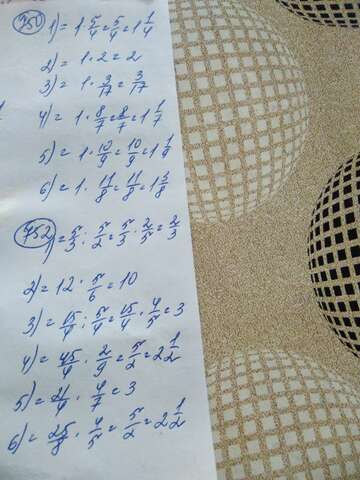 750 1) = 1 · 5/4 = 5/4 = 1 1/4
2) = 1 · 2 = 2
3) = 1 · 3/17 = 3/17
4) = 1 · 8/7 = 8/7 = 1 1/7
5) = 1 · 10/9 = 10/9 = 1 1/9
6) = 1 · 11/8 = 11/8 = 1 3/8
752 1) = 5/3 : 5/2 = 5/3 · 2/5 = 2/3
2) = 12 · 5/6 = 10
3) = 15/4 : 5/4 = 15/4 · 4/5 = 3
4) = 45/4 · 2/9 = 5/2 = 2 1/2
5) = 21/4 · 4/7 = 3
6) = 25/8 · 4/5 = 5/2 = 2 1/2